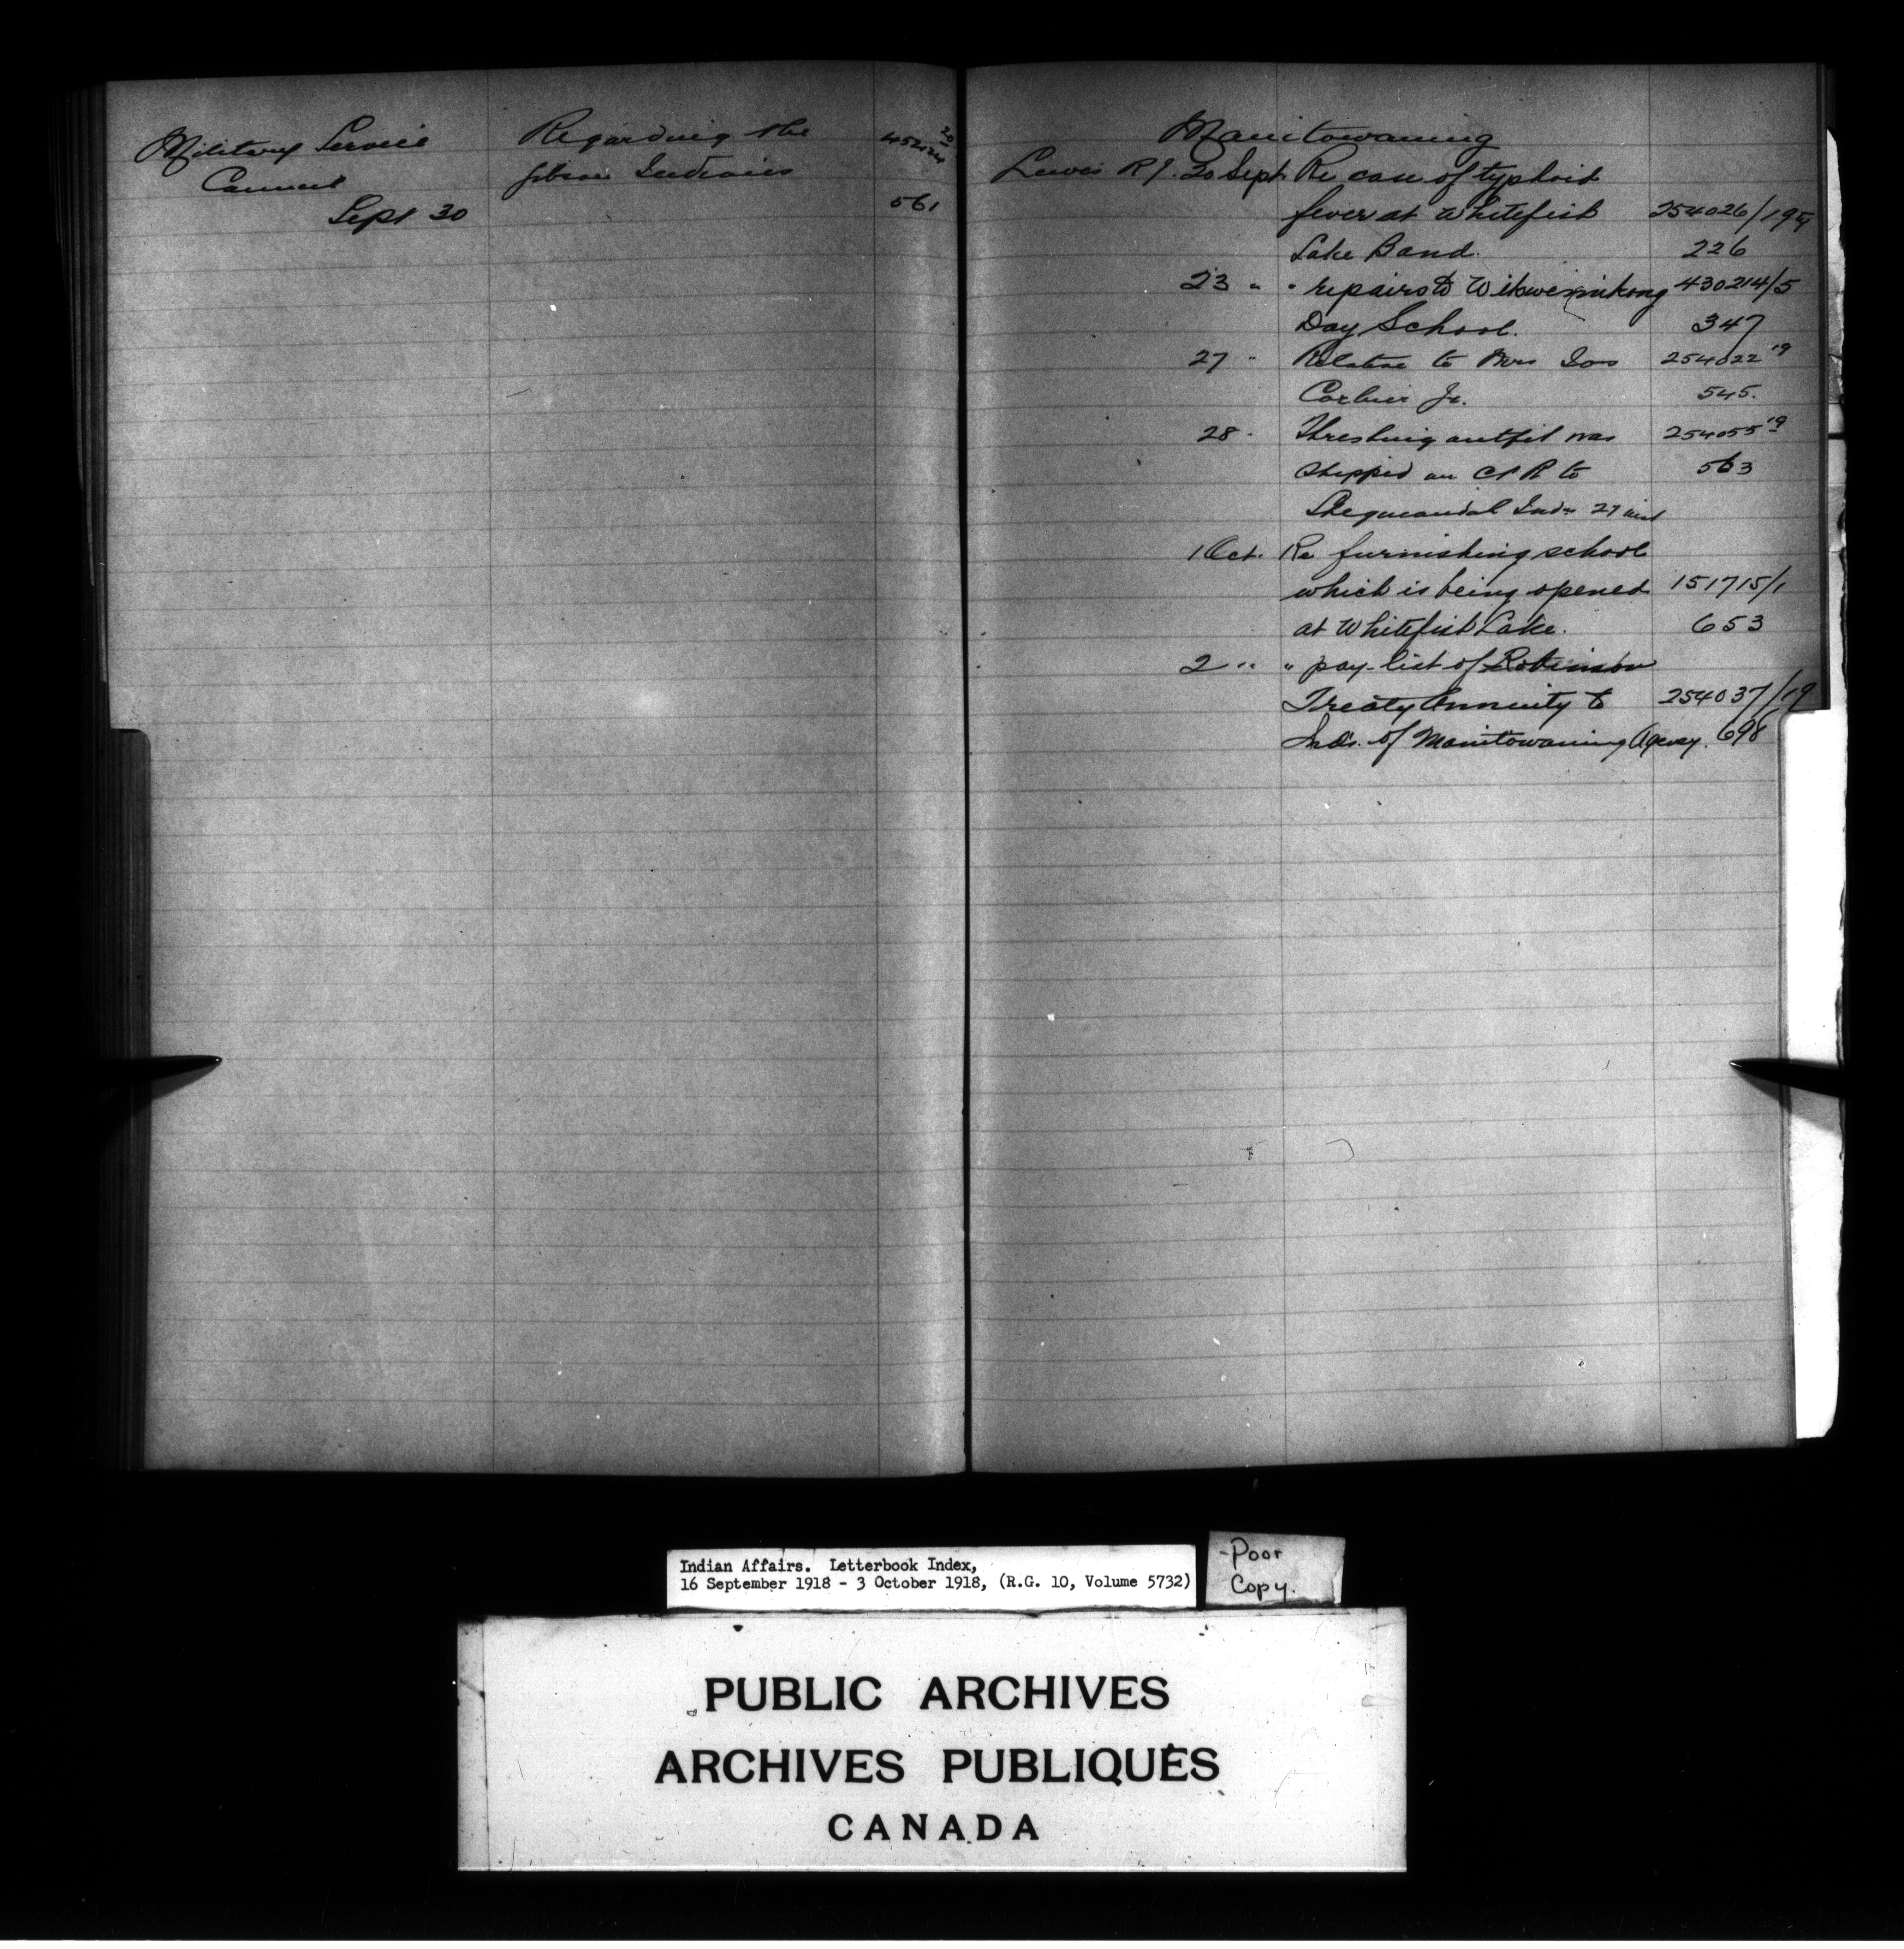 Military Service
Council
Sept 30
Regarding the
Indians
452124 20
561
Manitowaning
Lewis R J. 20 Sept. Re case of typhoid
fever at Whitefish 254026/19
Lake Band. 226
23 " " repairs to Wikwemikong 430214/5
Day School. 347
27 " Relative to Mrs 254022 19
Corbier Jr. 545.
28 " Threshing outfit was 254055 19
shipped on C P R to 563
Sheguiandah Inds 27 inst
1 Oct. Re furnishing school
which is being opened 151715/1
at Whitefish Lake. 653
2 " " pay-list of Robinson
Treaty Annuity to 254037/19
Inds. of Manitowaning Agency. 698
Indian Affairs. Letterbook Index,
16 September 1918 - 3 October 1918, (R.G. 10, Volume 5732)
-Poor
Copy.
PUBLIC ARCHIVES
ARCHIVES PUBLIQUES
CANADA